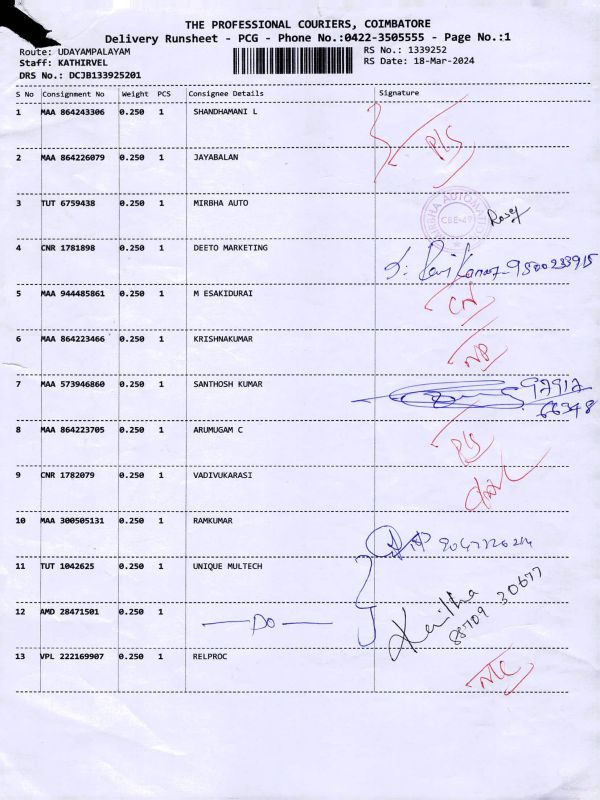 THE PROFESSIONAL COURIERS, COIMBATORE
Delivery Runsheet - PCG - Phone No.:0422-3505555 - Page No.:1
Route: UDAYAMPALAYAM
Staff: KATHIRVEL
DRS No.: DCJB133925201
RS No.: 1339252
RS Date: 18-Mar-2024
S No Consignment No Weight PCS Consignee Details Signature
1 MAA 864243306 0.250 1 SHANDHAMANI L
P/S
2 MAA 864226079 0.250 1 JAYABALAN
3 TUT 6759438 0.250 1 MIRBHA AUTO
CBE-49
4 CNR 1781898 0.250 1 DEETO MARKETING
9500233915
5 MAA 944485861 0.250 1 M ESAKIDURAI
6 MAA 864223466 0.250 1 KRISHNAKUMAR
NP
7 MAA 573946860 0.250 1 SANTHOSH KUMAR
97917
66378
8 MAA 864223705 0.250 1 ARUMUGAM C
P/S
9 CNR 1782079 0.250 1 VADIVUKARASI
10 MAA 300505131 0.250 1 RAMKUMAR
11 TUT 1042625 0.250 1 UNIQUE MULTECH
12 AMD 28471501 0.250 1 — DO —
88709 30677
13 VPL 222169907 0.250 1 RELPROC